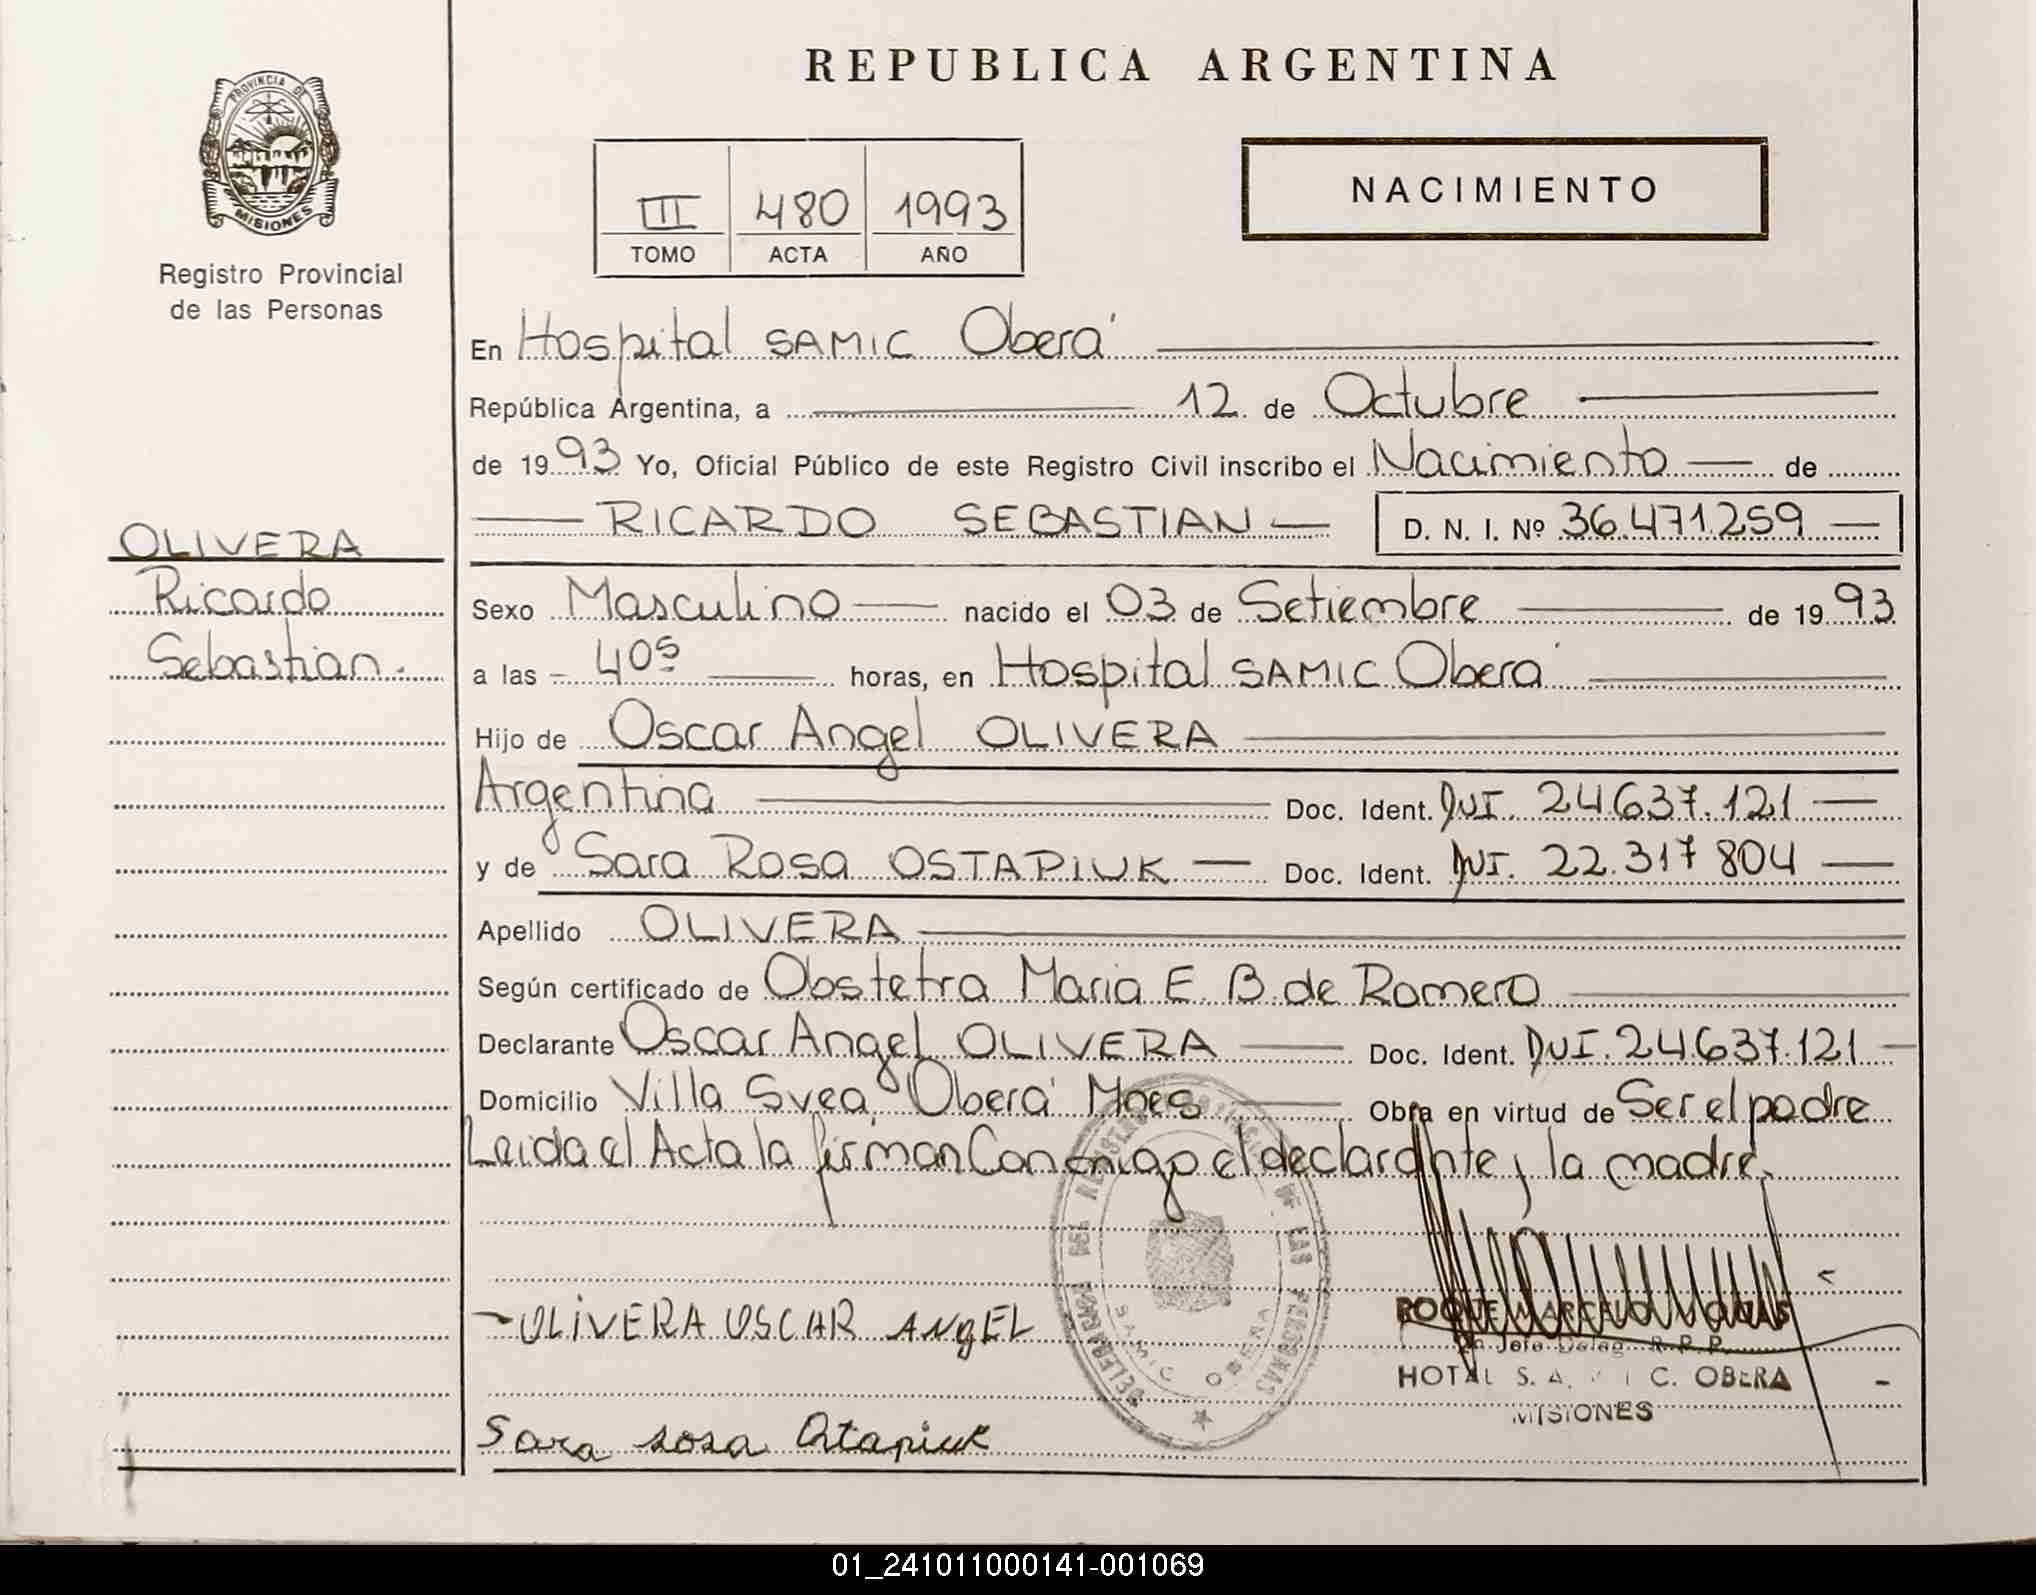 REPUBLICA ARGENTINA
PROVINCIA DE
MISIONES
Registro Provincial
de las Personas
III 480 1993
TOMO ACTA AÑO
NACIMIENTO
En Hospital SAMIC Oberá
República Argentina, a 12 de Octubre
de 1993 Yo, Oficial Público de este Registro Civil inscribo el Nacimiento de
RICARDO SEBASTIAN D. N. I. Nº 36.471.259
OLIVERA
Ricardo
Sebastian.
Sexo Masculino nacido el 03 de Setiembre de 1993
a las 405 horas, en Hospital SAMIC Oberá
Hijo de Oscar Angel OLIVERA
Argentina Doc. Ident. DNI. 24.637.121
y de Sara Rosa OSTAPIUK Doc. Ident. DNI. 22.317 804
Apellido OLIVERA
Según certificado de Obstetra Maria E B. de Romero
Declarante Oscar Angel OLIVERA Doc. Ident. DNI. 24.637.121
Domicilio Villa Svea Oberá Mnes Obra en virtud de Ser el padre
Leida el Acta la firman Conmigo el declarante y la madre.
DEL REGISTRO DE LAS PERSONAS
SAMIC OBERA
OLIVERA OSCAR ANgEL
ROQUE MARCELO
Jefe Deleg. R. P. P.
HOTAL S. A. M I C. OBERA
MISIONES
Sara rosa Ostapiuk
01_241011000141-001069